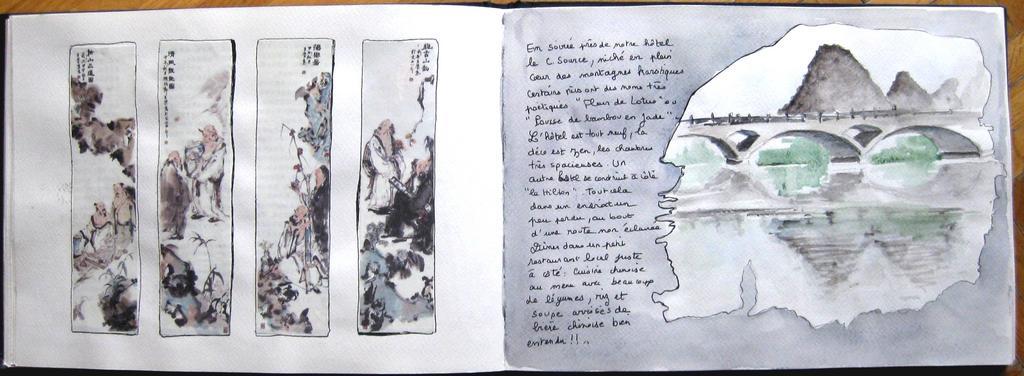 En soirée près de notre hôtel
le C Source, niché en plein
cœur des montagnes karstiques
Certains pics ont des noms très
poétiques "Fleur de Lotus" ou
"Pousse de bambou en Jade"
L'hôtel est tout neuf, la
déco est zen, les chambres
très spacieuses. Un
autre hôtel se construit à côté
"le Hilton". Tout cela
dans un endroit un
peu perdu, au bout
d'une route non éclairée
Dîner dans un petit
restaurant local juste
à côté : Cuisine chinoise
au menu avec beaucoup
de légumes, riz et
soupe arrosés de
bière chinoise bien
entendu !!..